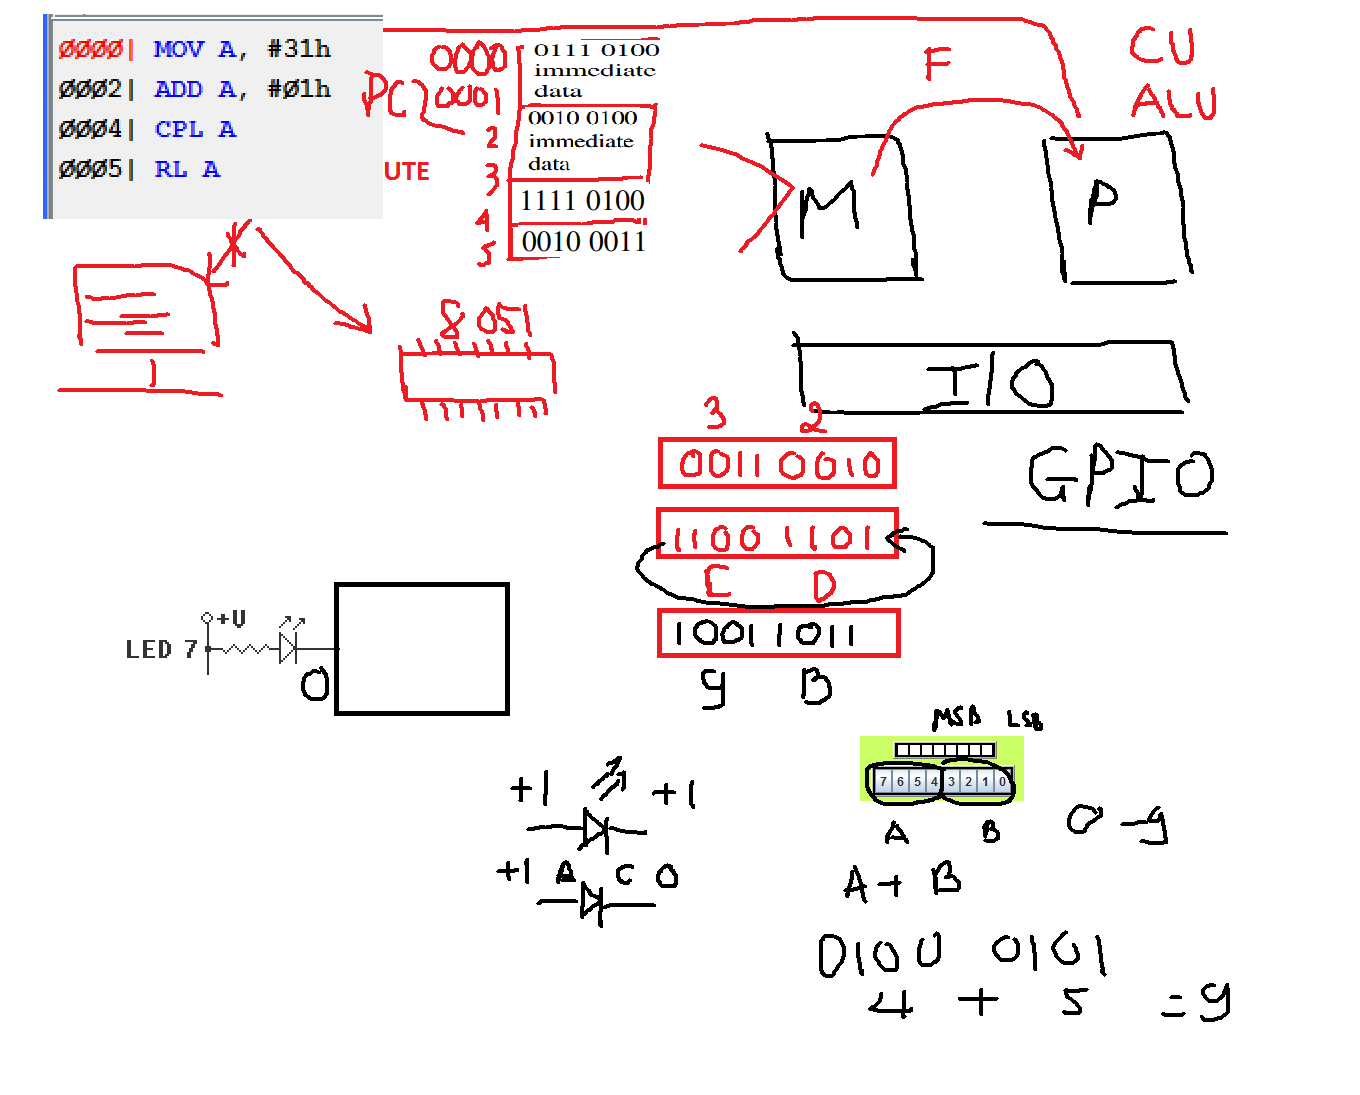 0000| MOV A, #31h
0002| ADD A, #01h
0004| CPL A
0005| RL A
UTE
PC
0000
0001
2
3
4
5
0111 0100
immediate
data
0010 0100
immediate
data
1111 0100
0010 0011
F
CU
ALU
M
P
I/O
GPIO
8051
3 2
0011 0010
1100 1101
C D
1001 1011
9 B
+V
LED 7
0
MSB LSB
7 6 5 4 3 2 1 0
A B
0-9
A + B
0100 0101
4 + 5 = 9
+1 +1
+1 A C 0